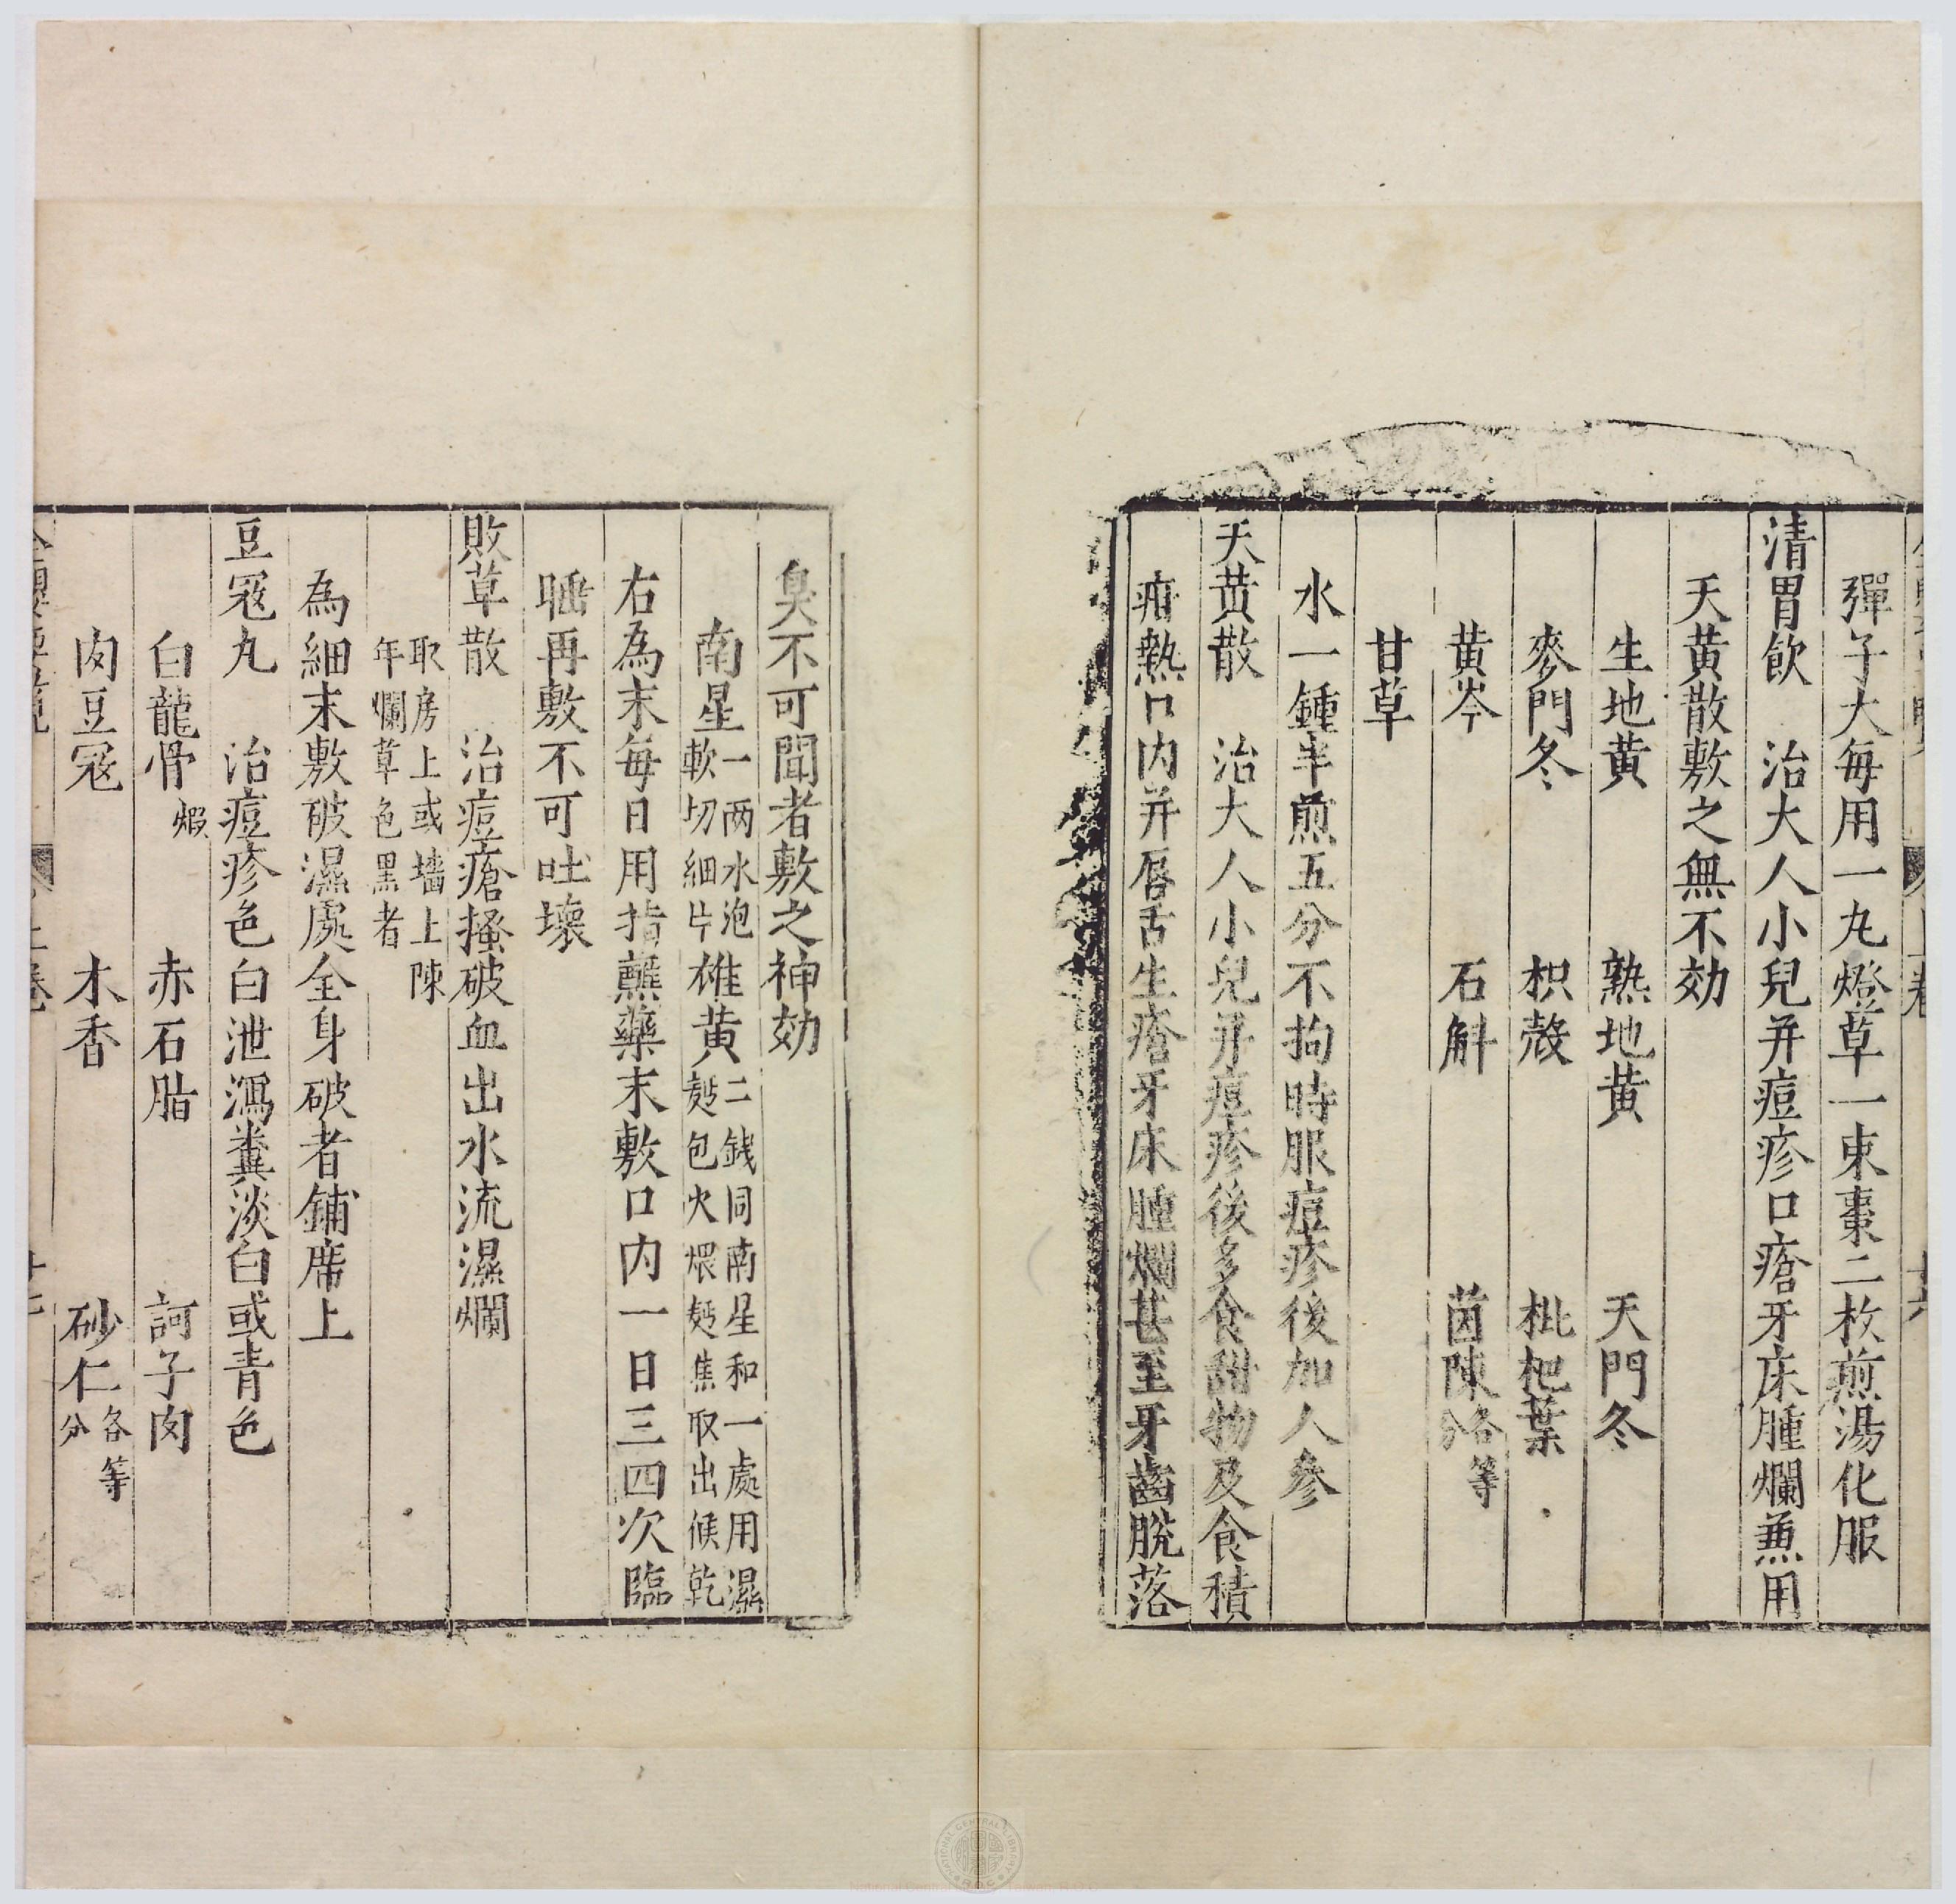 彈子大每用一丸燈草一束棗二枚煎湯化服
清胃飲　治大人小兒并痘疹口瘡牙床腫爛兼用
天黃散敷之無不効
生地黃　熟地黃　天門冬
麥門冬　枳殻　枇杷葉
黃岑　石斛　茵陳各等分
甘草
水一鍾半煎五分不拘時服痘疹後加人參
天黃散　治大人小兒并痘疹後多食甜物及食積
疳熱口內并唇舌生瘡牙床腫爛甚至牙齒脫落
臭不可聞者敷之神効
南星一两水泡軟切細片雄黃二錢同南星和一處用濕麪包火煨麪焦取出候乾
右為末每日用指蘸藥末敷口內一日三四次臨
睡再敷不可吐壞
敗草散　治痘瘡搔破血出水流濕爛
取房上或墻上陳年爛草色黑者
為細末敷破濕處全身破者鋪席上
豆冦丸　治痘疹色白泄瀉糞淡白或青色
白龍骨煆　赤石脂　訶子肉
肉豆冦　木香　砂仁各等分